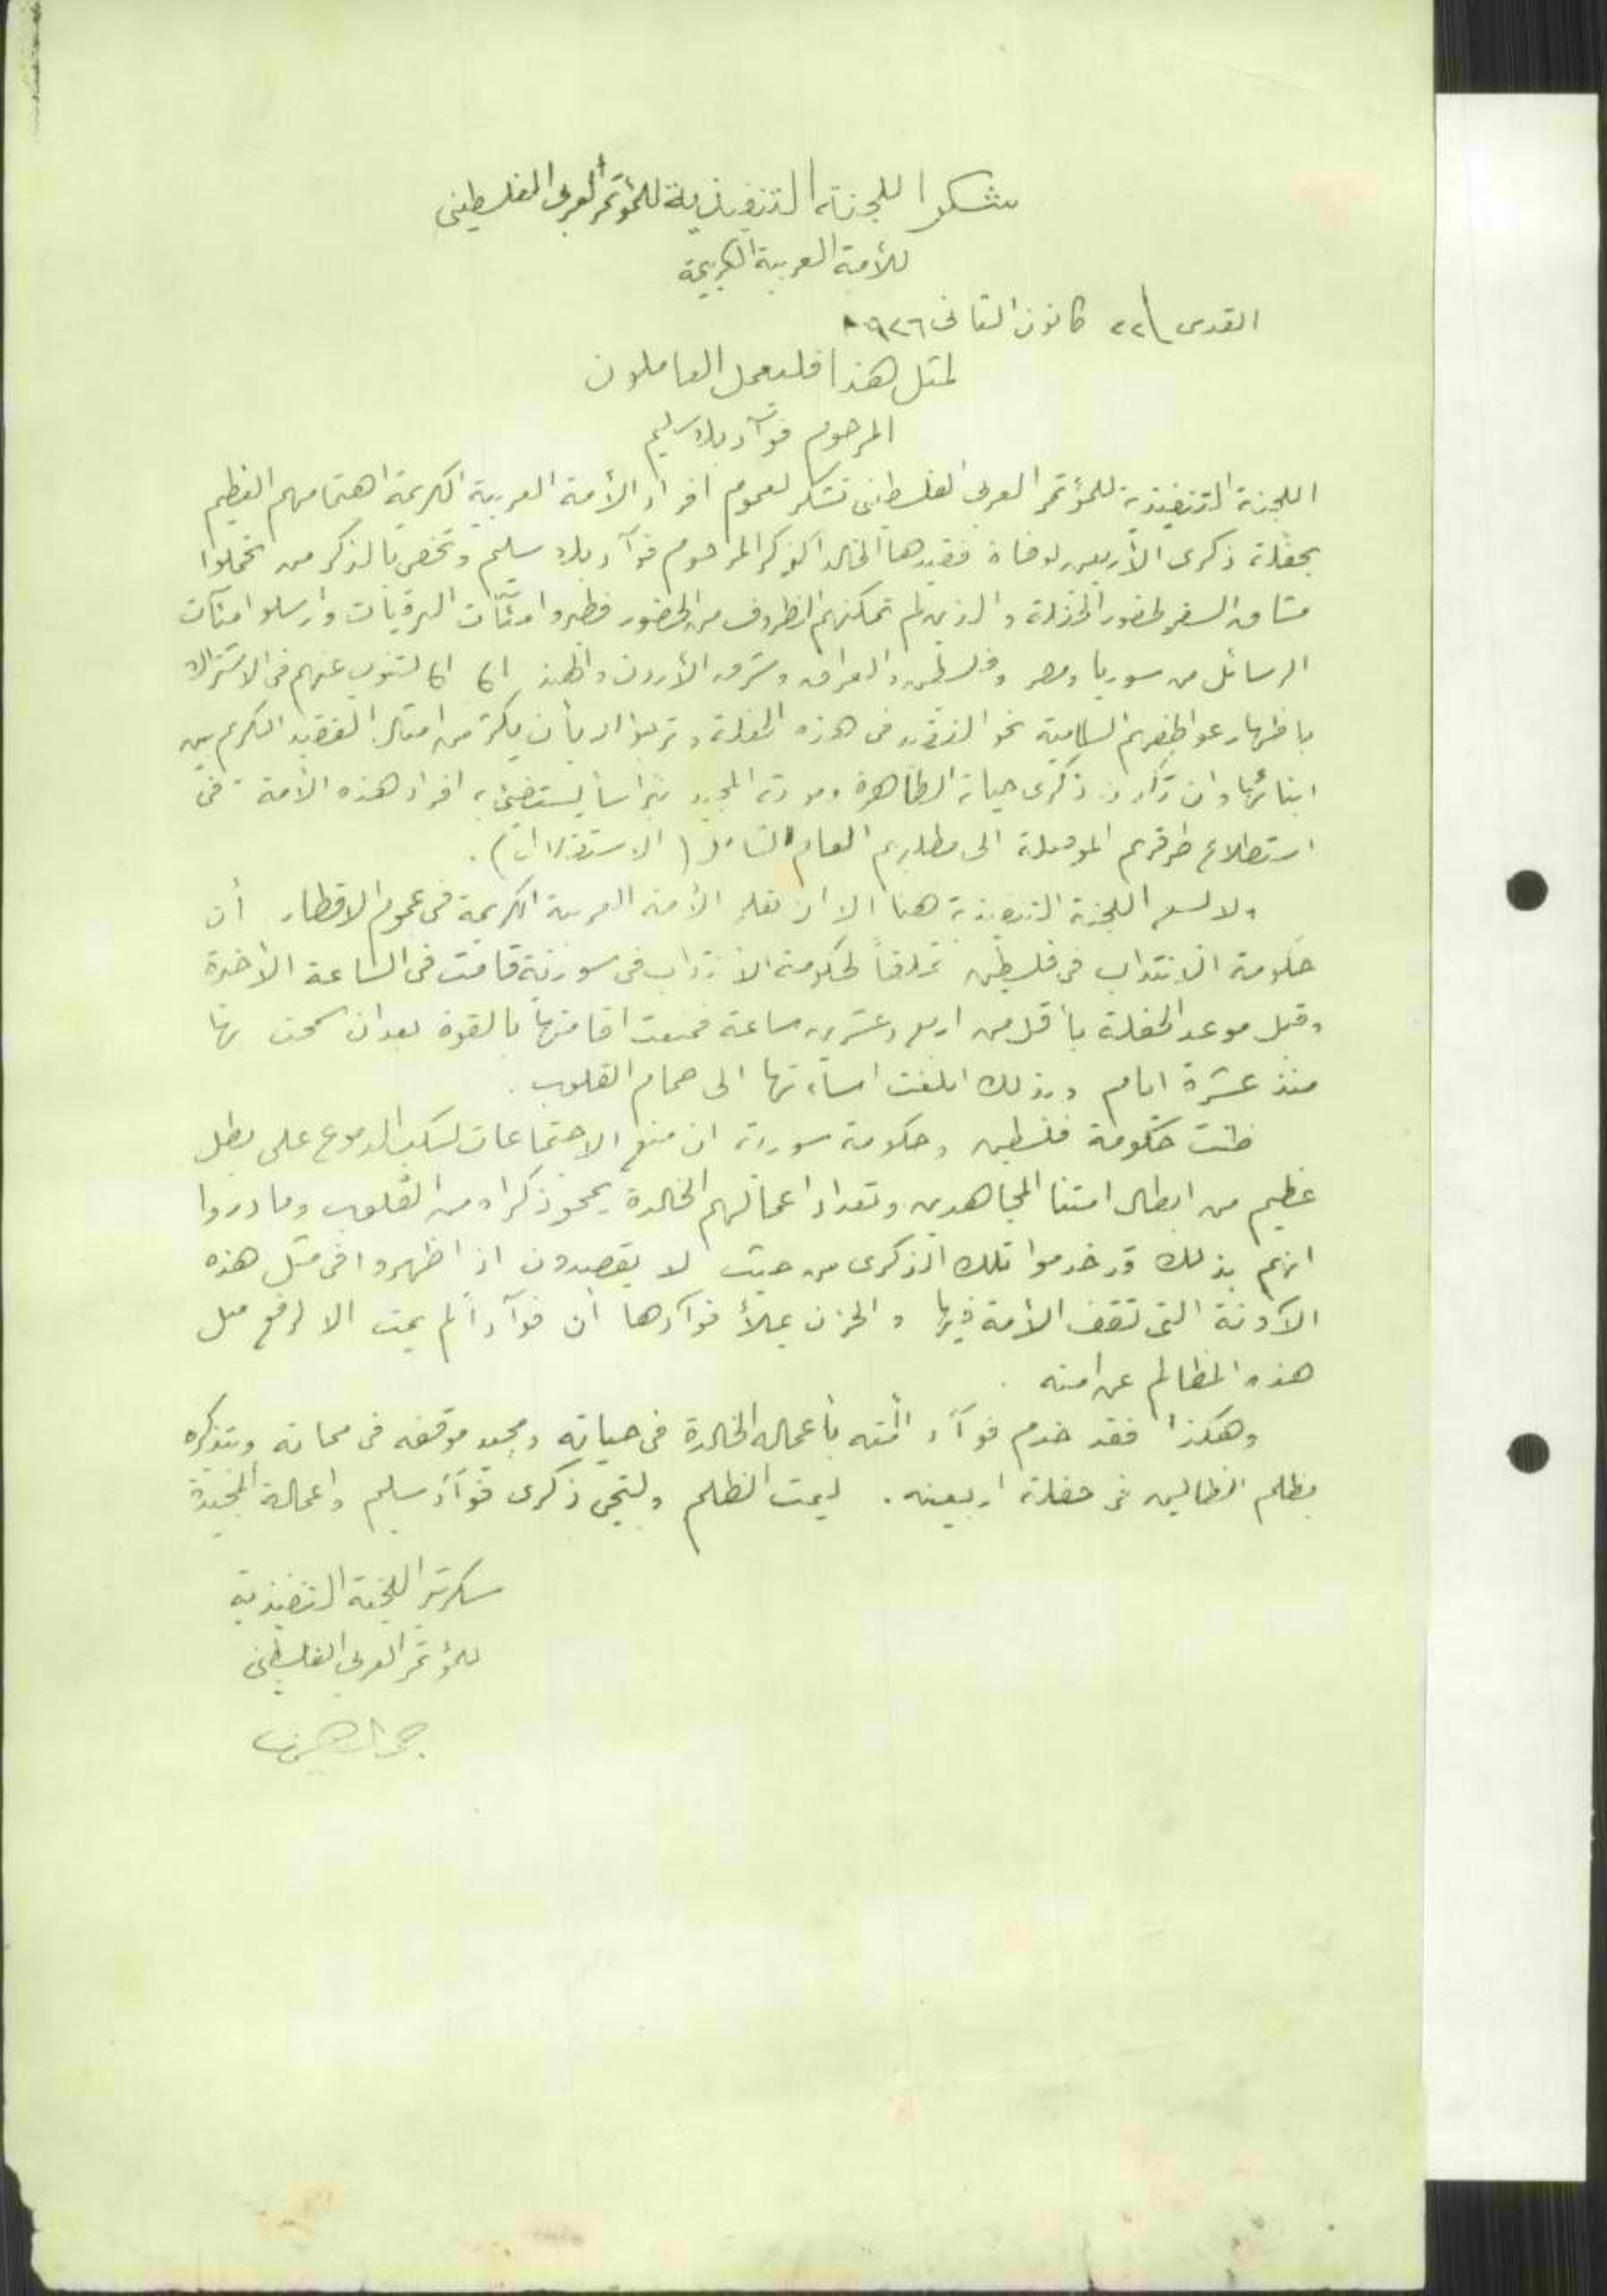 شكر اللجنة التنفيذية للمؤتمر العربي الفلسطيني
للأمة العربية الكريمة
القدس ٢٢ كانون الثاني ٩٢٦
لمثل هذا فليعمل العاملون
المرحوم فوآد بك سليم
اللجنة التنفيذية للمؤتمر العربي الفلسطيني تشكر لعموم افراد الأمة العربية الكريمة اهتمامهم العظيم
بحفلة ذكرى الأربعين لوفاة فقيدها الخالد الذكر المرحوم فوآد بك سليم وتخص بالذكر من تحملوا
مشاق السفر لحضور الحفلة والذين لم تمكنهم الظروف من الحضور فطيروا مئآت البرقيات وارسلوا مئآت
الرسائل من سوريا ومصر وفلسطين والعراق وشرق الأردن والهند لتنوب عنهم في الاشتراك
باظهار عواطفهم السامية نحو الفقيد في هذه الحفلة وترجو الله بأن يكثر من امثال الفقيد الكريم بين
ابنائها وان تكون ذكرى حياته الطاهرة وموته المجيد نبراساً يستضيئ به افراد هذه الأمة في
استطلاع طرقهم الموصلة الى مطلبهم العام الشامل (الاستقلال).
ولا يسع اللجنة التنفيذية هنا الا ان تعلم الأمة العربية الكريمة في عموم الاقطار أن
حكومة الانتداب في فلسطين تملقاً لحكومة الانتداب في سورية قامت في الساعة الأخيرة
وقبل موعد الحفلة بأقل من اربع وعشرين ساعة فمنعت اقامتها بالقوة بعد ان سمحت بها
منذ عشرة ايام وبذلك ابلغت اساءتها الى صمام القلوب.
ظنت حكومة فلسطين وحكومة سورية ان منع الاجتماعات لسكب الدموع على بطل
عظيم من ابطال امتنا المجاهدين وتعداد اعمالهم الخالدة يمحو ذكراه من القلوب وما دروا
انهم بذلك قد خدموا تلك الذكرى من حيث لا يقصدون اذ اظهروا في مثل هذه
الآونة التي تقف الأمة فيها والحزن يملأ فوآدها أن فوآداً لم يمت الا لرفع مثل
هذه المظالم عن امته.
وهكذا فقد خدم فوآد أمته بأعماله الخالدة في حياته ومجيد موقفه في مماته وبتذكيره
بظلم الظالمين في حفلة اربعينه. ليمت الظلم ولتحي ذكرى فوآد سليم واعماله المجيدة
سكرتير اللجنة التنفيذية
للمؤتمر العربي الفلسطيني
جمال الحسيني